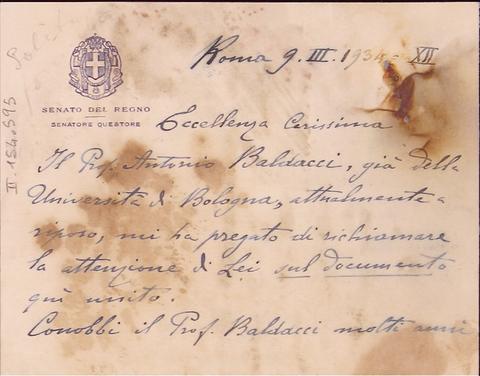 Roma 9. III. 1934 - XII
SENATO DEL REGNO
SENATORE QUESTORE
II. 154.595
Eccellenza Carissima
Il Prof. Antonio Baldacci, già della
Università di Bologna, attualmente a
riposo, mi ha pregato di richiamare
la attenzione di Lei sul documento
quì unito.
Conobbi il Prof. Baldacci molti anni